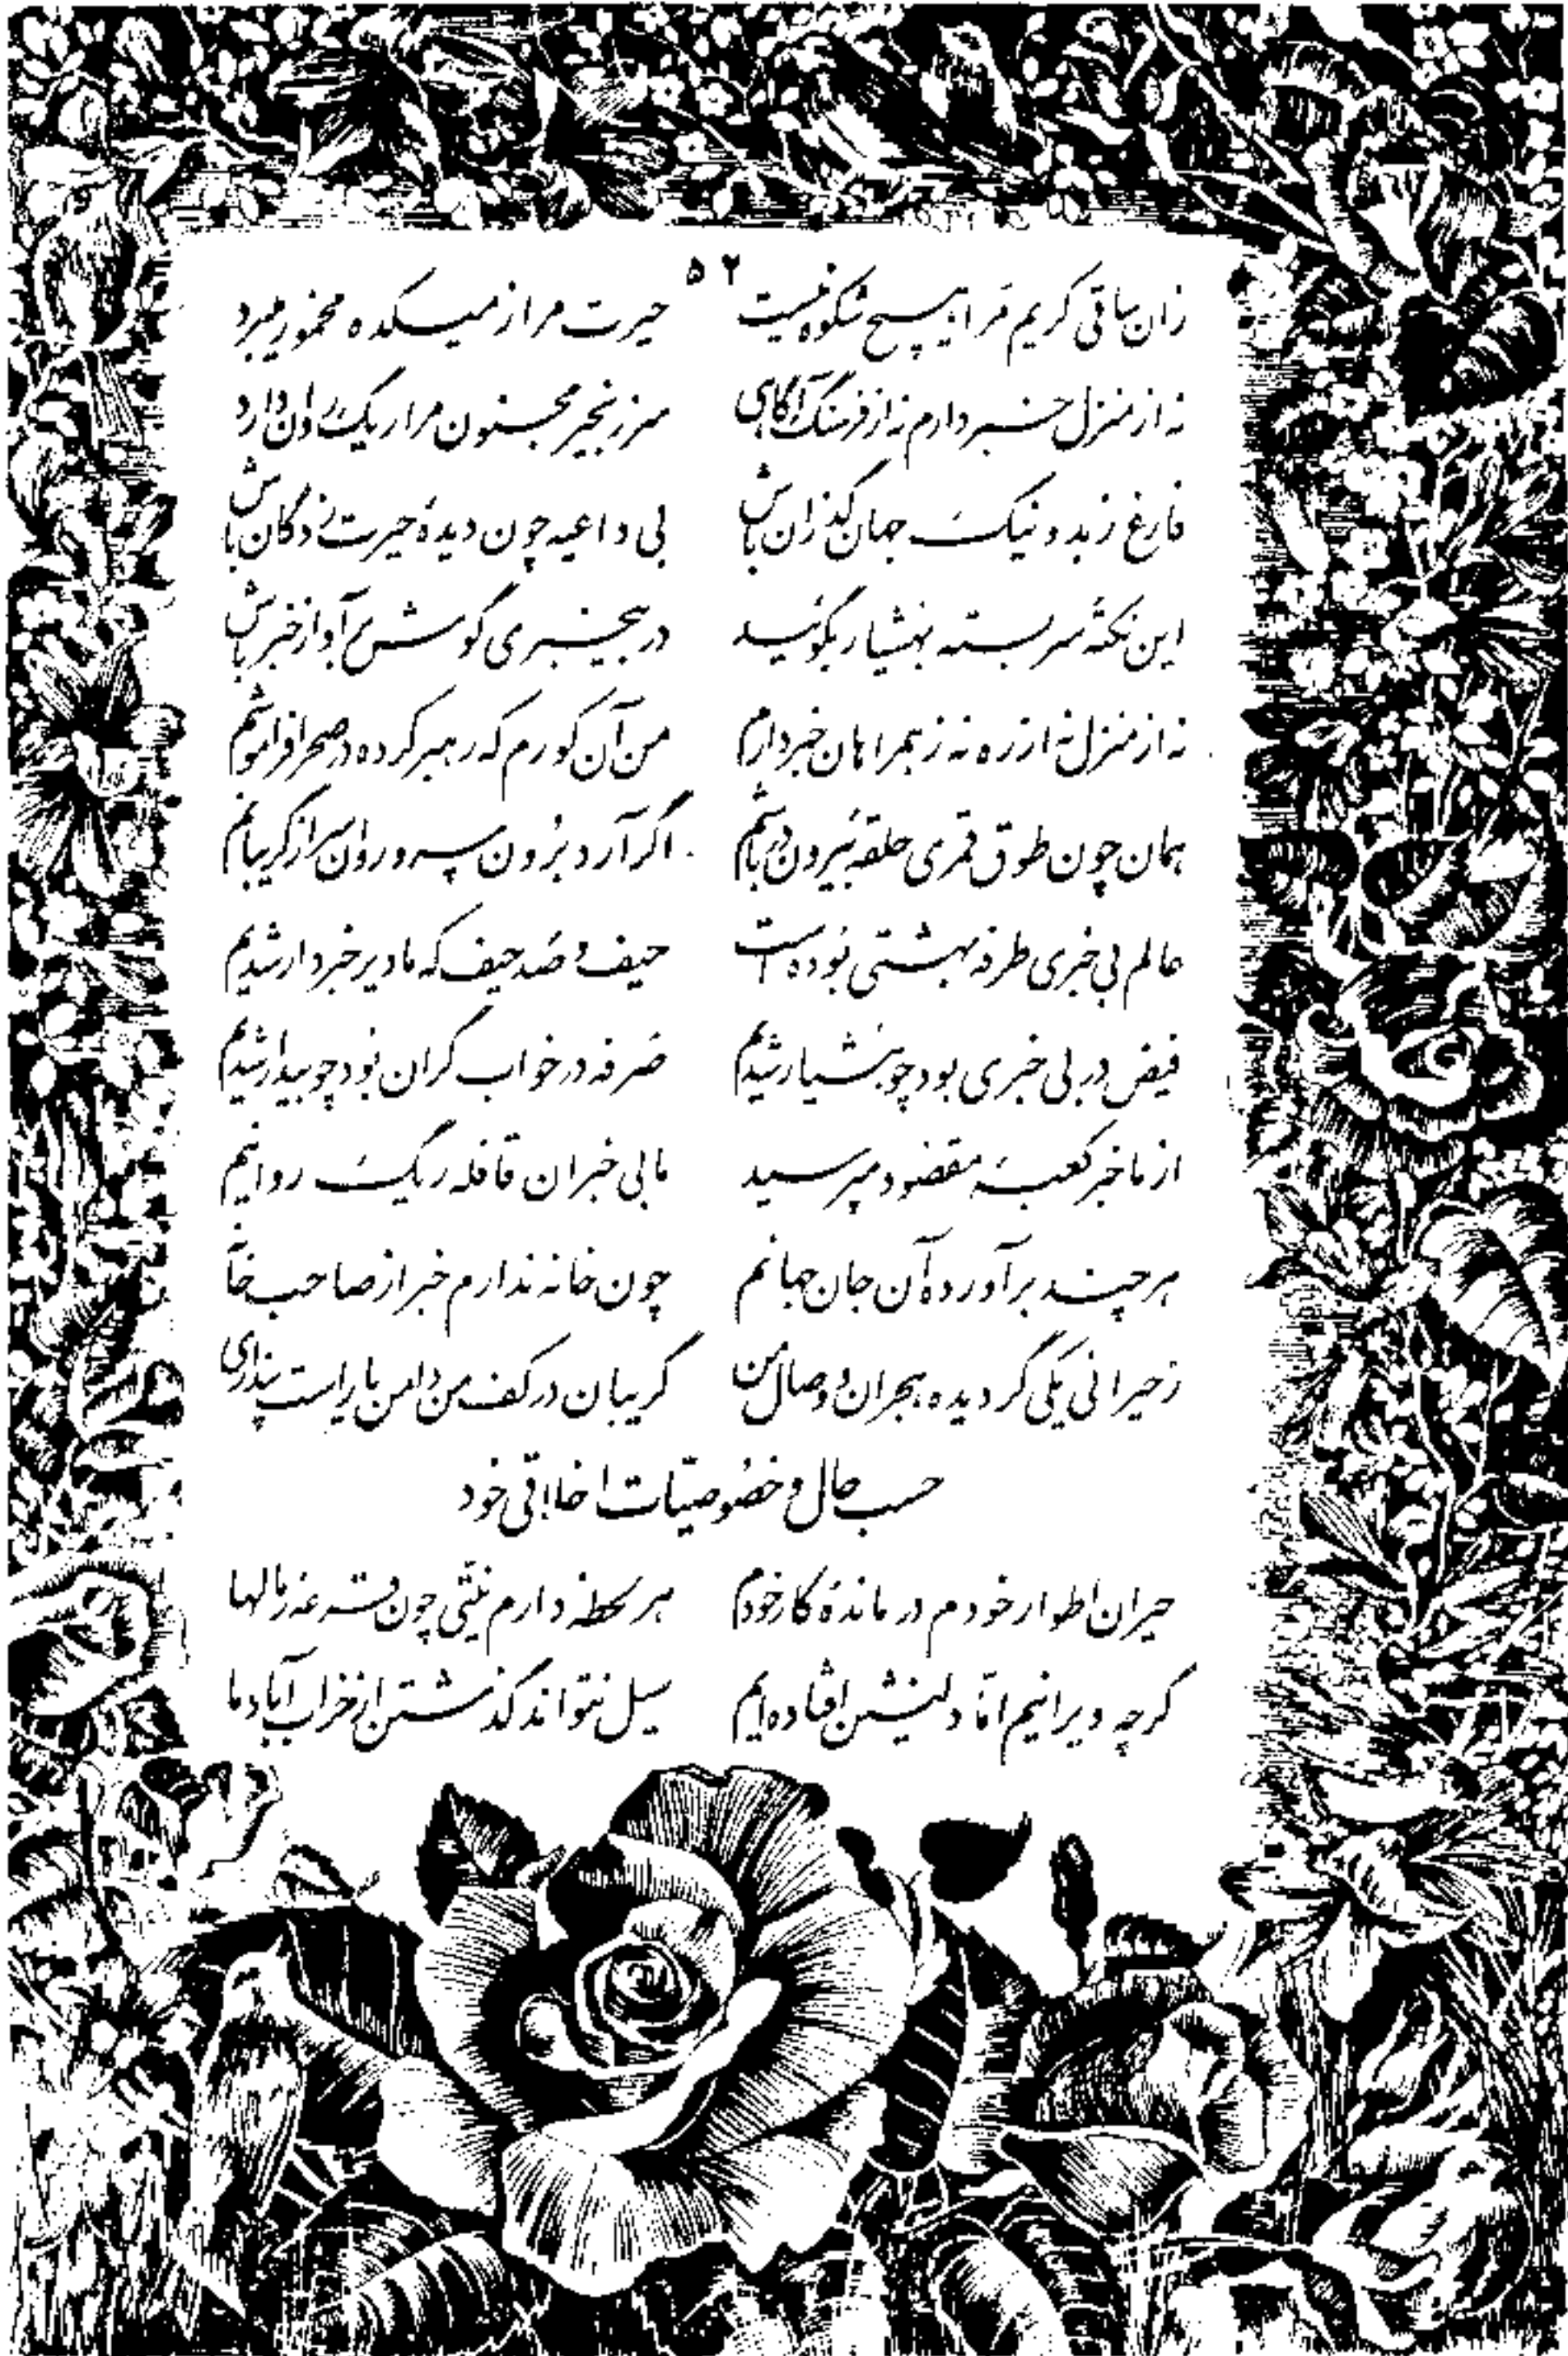 ۵۲
زان ساقی کریم مرا هیچ شکوه نیست حیرت مرا ز میکده مخمور میبرد
نه از منزل خبر دارم نه از فرسنگ آگاهی سر زنجیر مجنون مرا ریگ روان دارد
فارغ ز بد و نیک جهان گذران باش بی داعیه چون دیدهٔ حیرت زدگان باش
این نکتهٔ سربسته بهشیار بگوئید در بیخبری گوش بر آواز خبر باش
نه از منزل نه از ره نه ز همراهان خبر دارم من آن کورم که رهبر کرده در صحرا فراموشم
همان چون طوق قمری حلقه بیرون در باشم اگر آرد برون سرو روان سر از گریبانم
عالم بی خبری طرفه بهشتی بوده است حیف و صد حیف که ما دیر خبردار شدیم
فیض در بی خبری بود چو هشیار شدیم صرفه در خواب گران بود چو بیدار شدیم
از ما خبر کعبهٔ مقصود مپرسید ما بی خبران قافله ریگ روانیم
هر چند برآوردهٔ آن جان جهانم چون خانه ندارم خبر از صاحب خانه
ز حیرانی یکی گردیده هجران و وصال من گریبان در کف من دامن یار است پنداری
حسب حال و خصوصیات اخلاقی خود
حیران اطوار خودم درماندهٔ کار خودم هر لحظه دارم نیتی چون قرعه رمالها
گرچه ویرانیم اما دلنشین افتاده ایم سیل نتواند گذشتن از خراب آباد ما